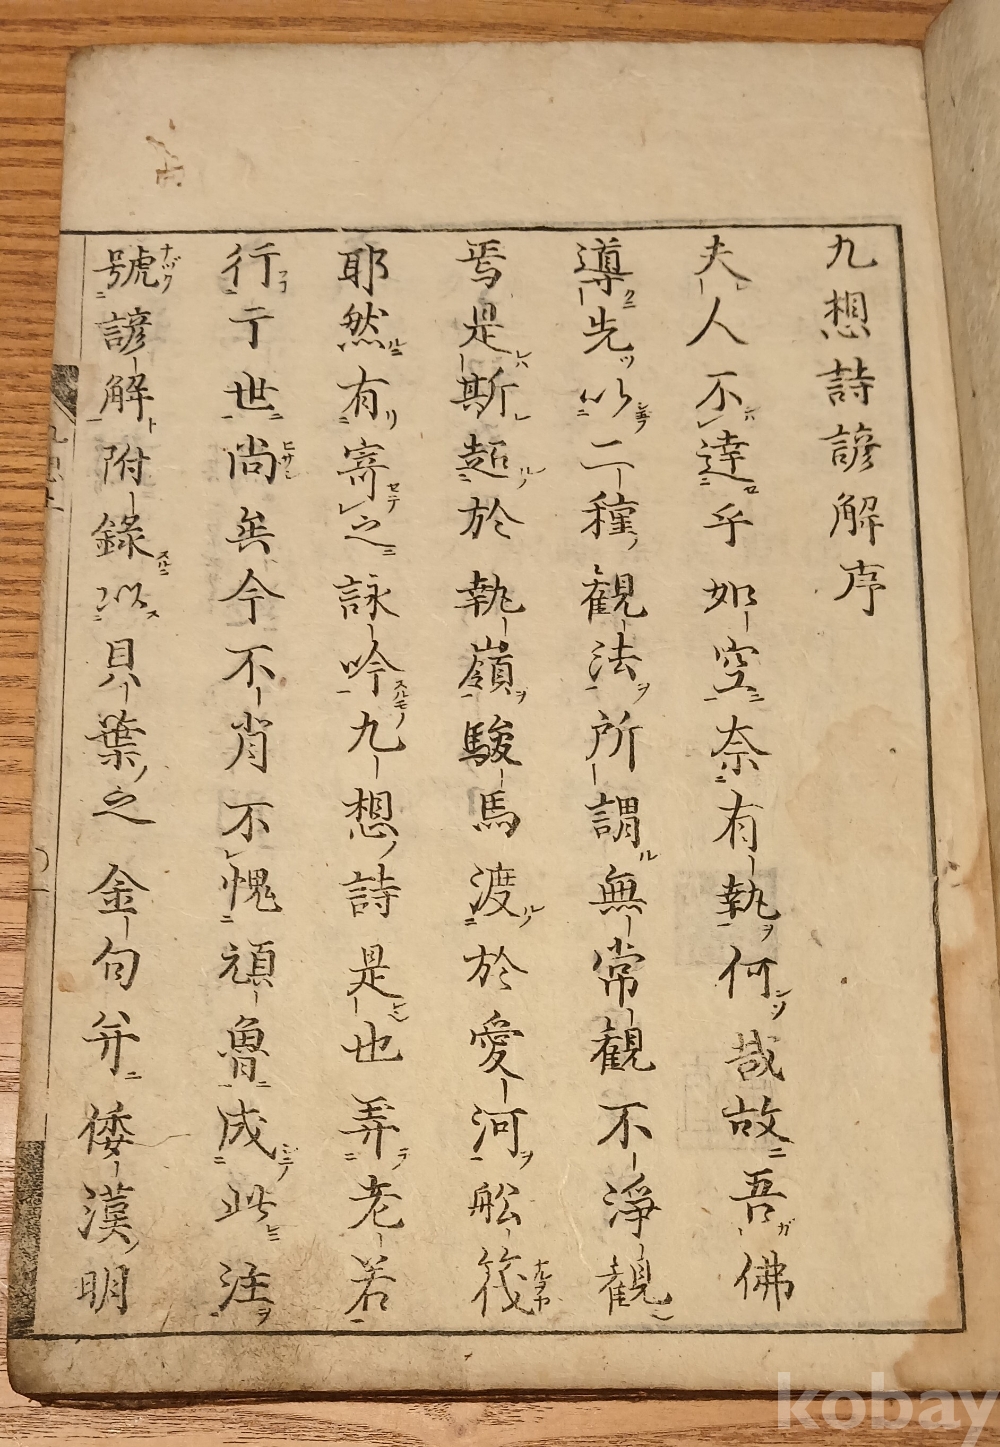 九想詩諺解序
夫人不達乎如空奈有執何哉故吾佛
導先以二種観法所謂無常観不淨観
焉是斯超於執嶺駿馬渡於愛河舩筏
耶然有寄之詠吟九想詩是也弄老若
行于世尚矣今不肖不愧頑魯成此注
號諺解附錄以貝葉之金句并倭漢明
kobay